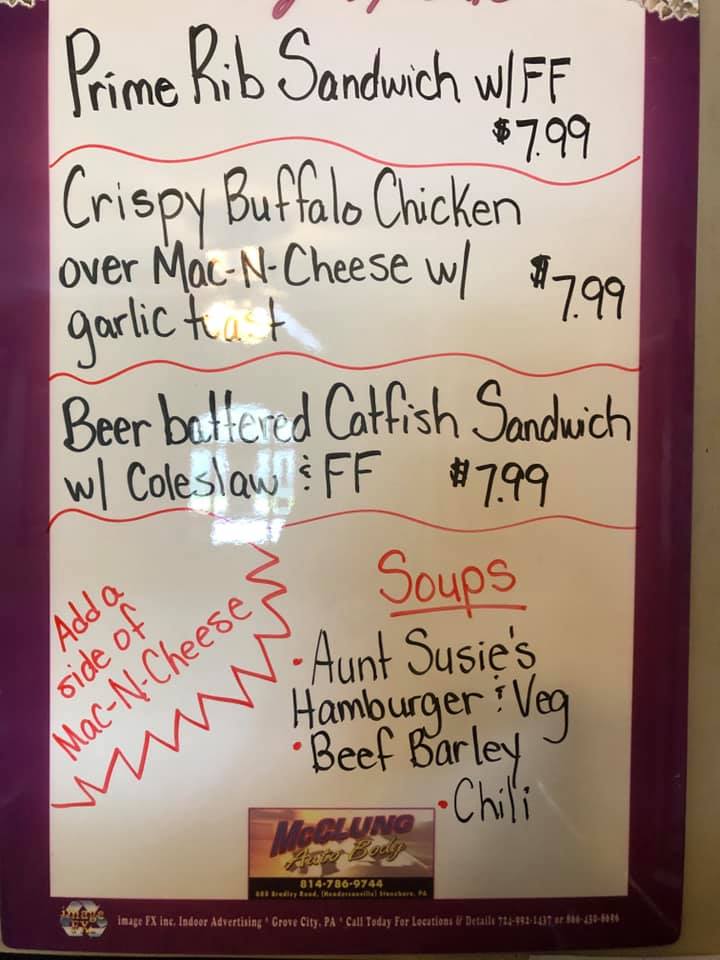 Prime Rib Sandwich w/FF
$7.99
Crispy Buffalo Chicken
over Mac-N-Cheese w/ $7.99
garlic toast
Beer battered Catfish Sandwich
w/ Coleslaw & FF $7.99
Add a
side of
Mac-N-Cheese
Soups
• Aunt Susie's
Hamburger & Veg
• Beef Barley
• Chili
McCLUNG
Auto Body
814-786-9744
888 Bradley Road, (Hendersonville) Stoneboro, PA
image FX
image FX inc. Indoor Advertising * Grove City, PA * Call Today For Locations & Details 724-992-1437 or 866-430-8686